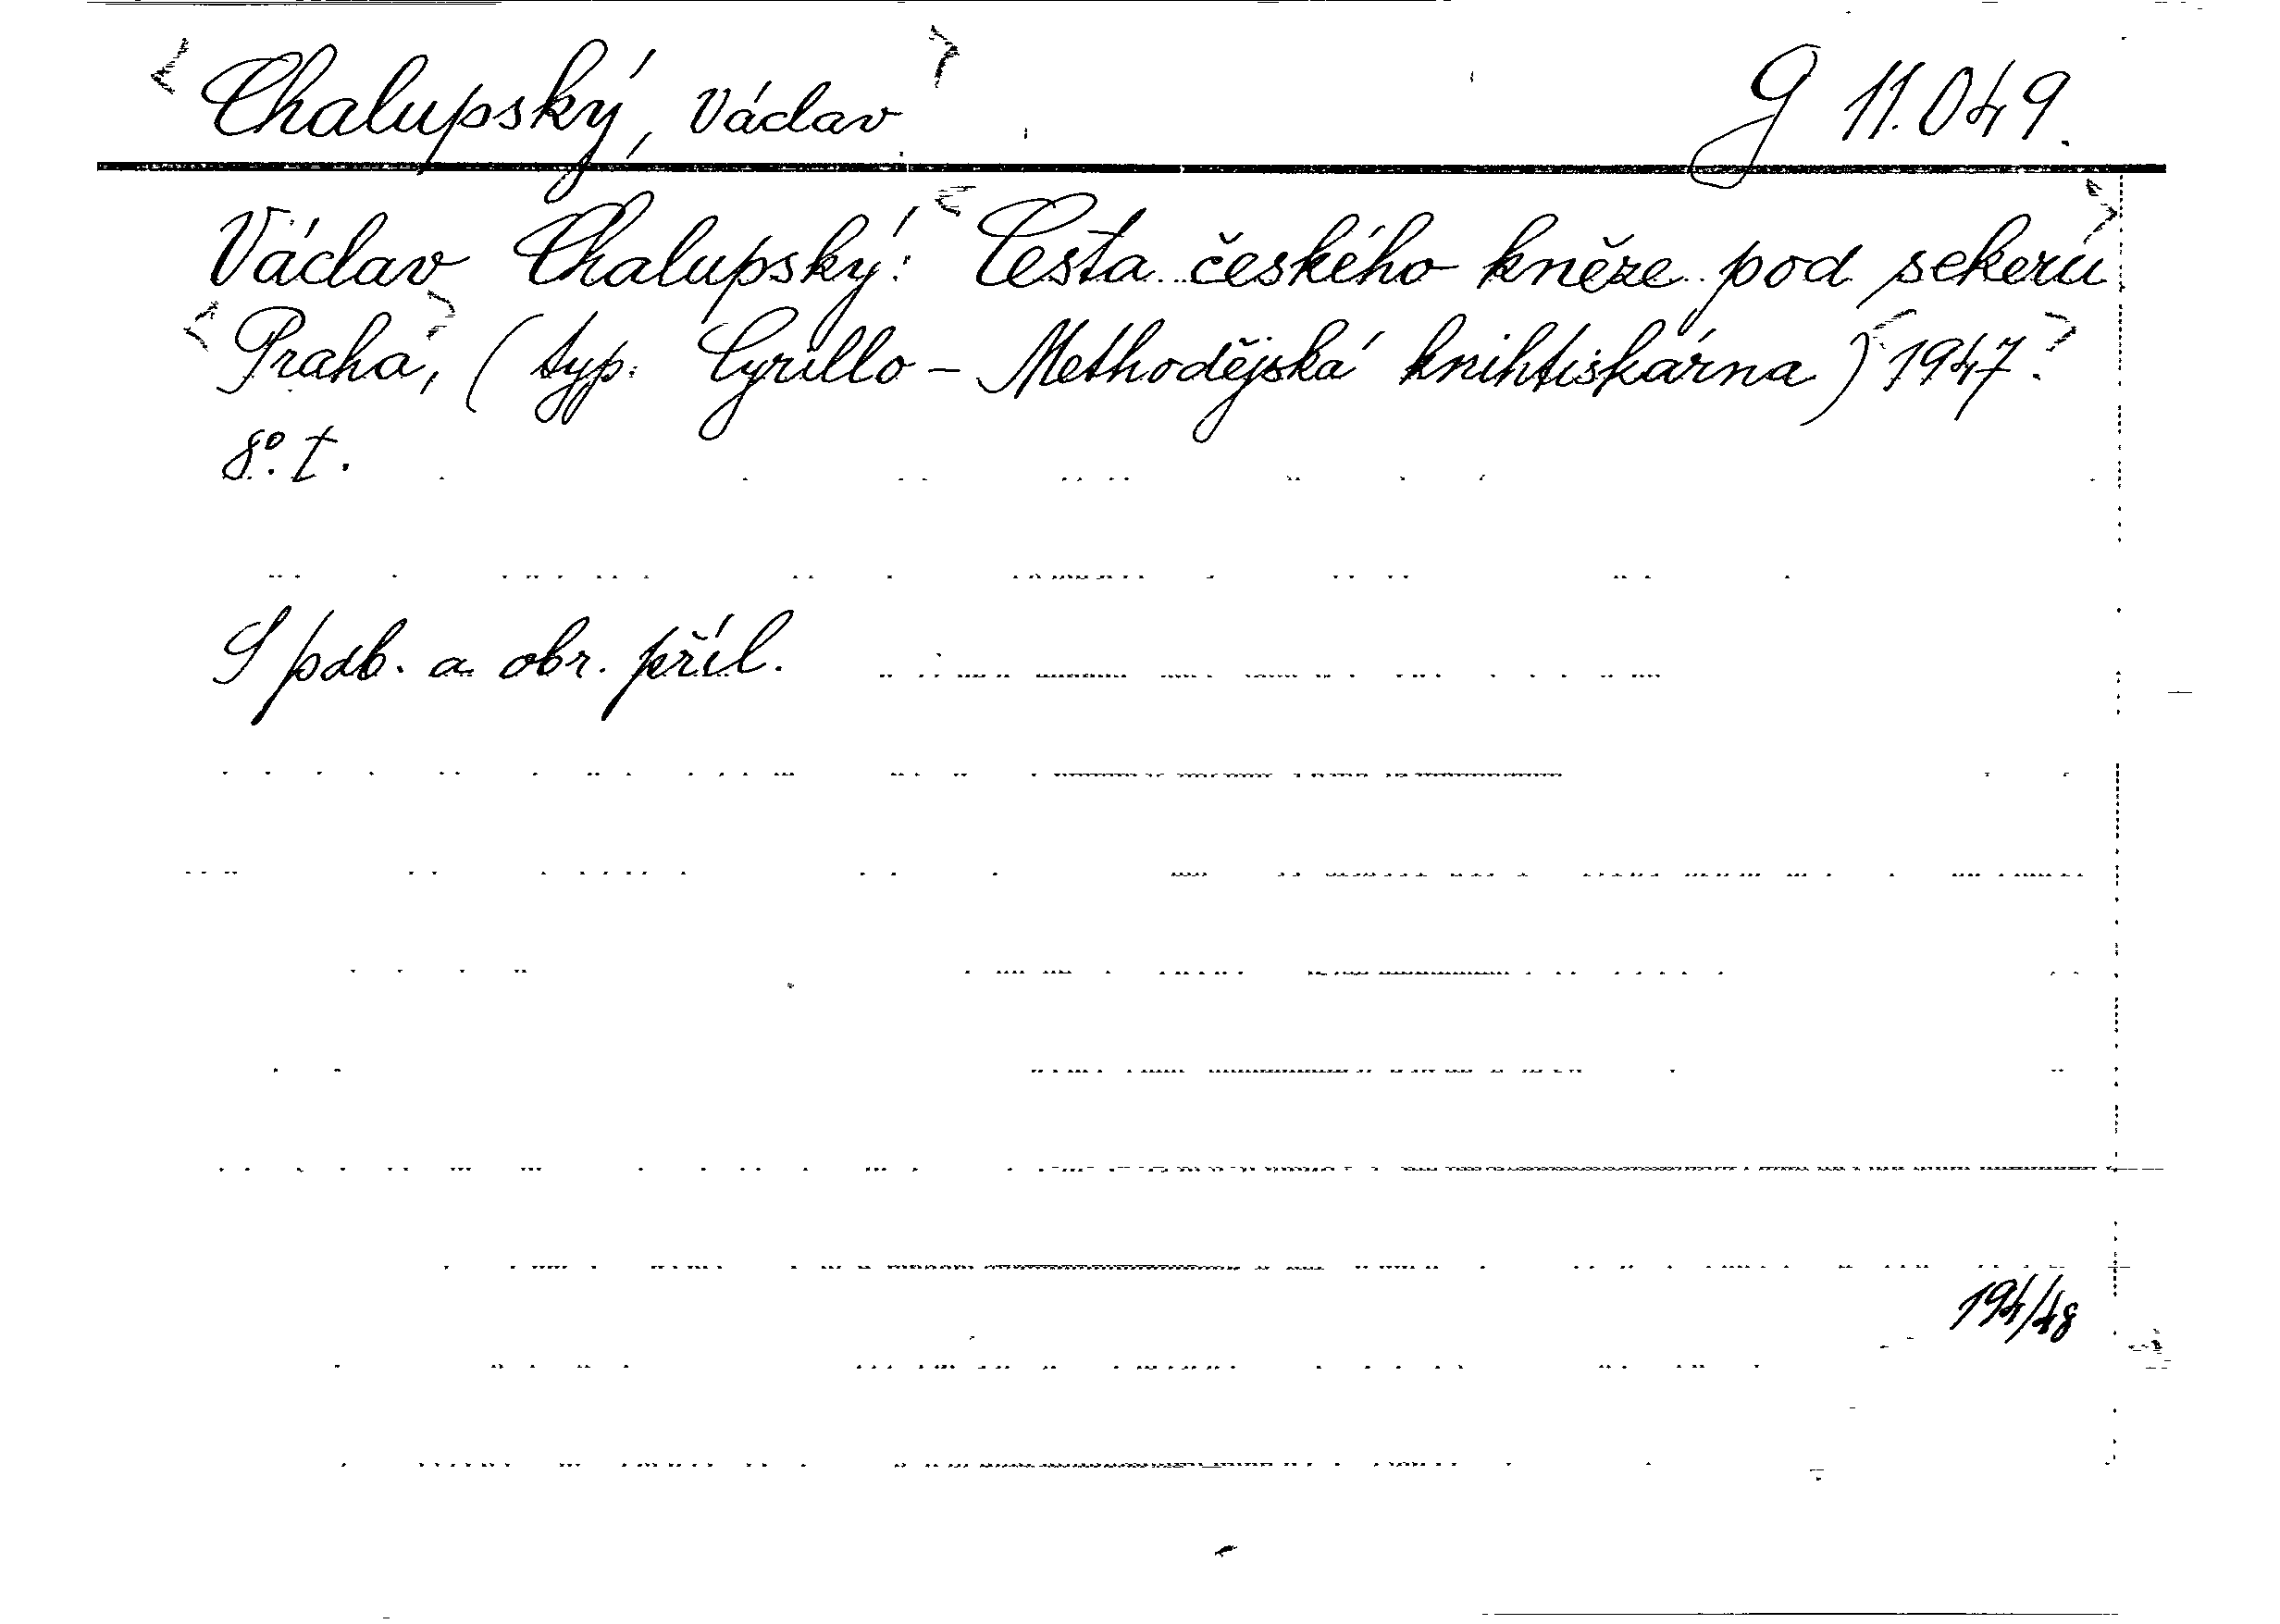 <Chalupský, Václav> g 11.049.
Václav Chalupský: <Cesta českého kněze pod sekeru>
<Praha>, (typ. Cyrillo-Methodějská knihtiskárna) <1947>.
8°. I.
S pdb. a obr. příl.
194/48